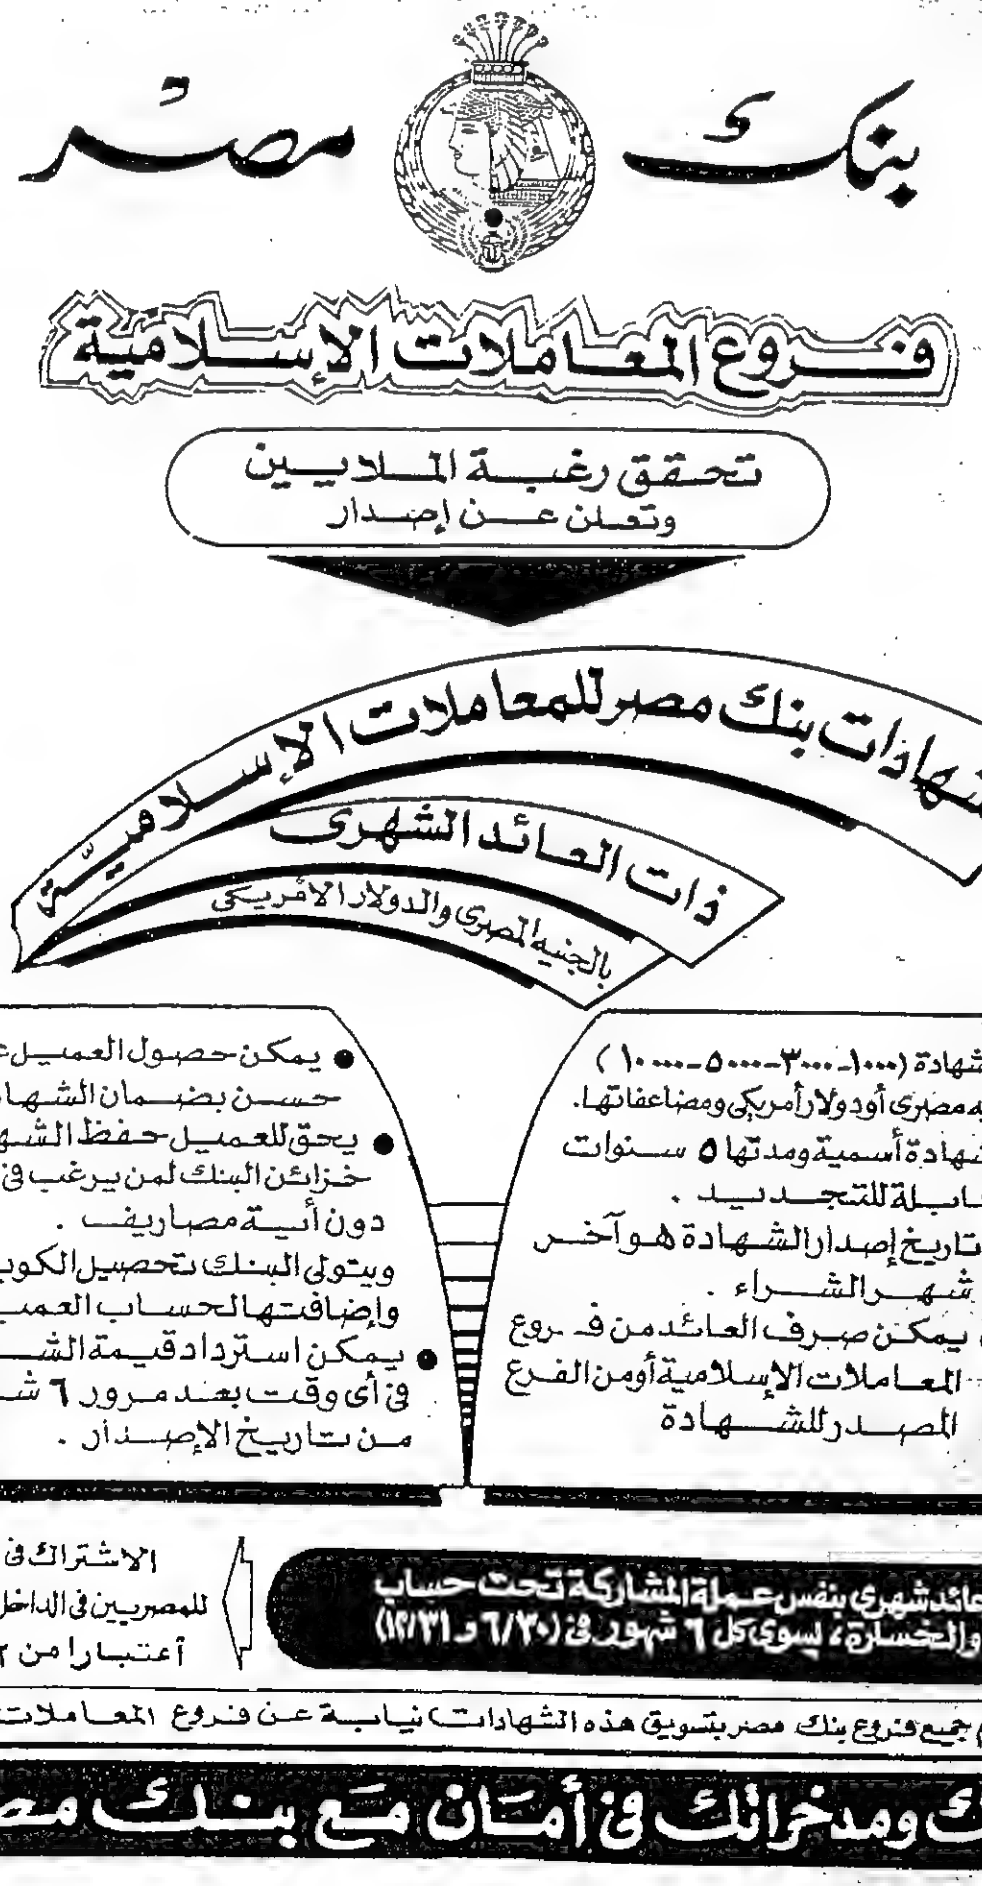 بنك مصر
فروع المعاملات الإسلامية
تحقق رغبة الملايين
وتعلن عن إصدار
شهادات بنك مصر للمعاملات الإسلامية
ذات العائد الشهرى
بالجنيه المصرى والدولار الامريكى
شهادة (١٠٠٠-٣٠٠٠-٥٠٠٠-١٠٠٠٠)
مصرى أو دولار أمريكى ومضاعفاتها.
شهادة أسمية ومدتها ٥ سنوات
قابلة للتجديد .
تاريخ إصدار الشهادة هو آخر
شهر الشراء .
يمكن صرف العائد من فروع
المعاملات الإسلامية أو من الفرع
المصدر للشهادة
● يمكن حصول العميل
حسن بضمان
● يحق للعميل حفظ
خزائن البنك لمن يرغب فى
دون أية مصاريف .
ويتولى البنك تحصيل
وإضافتها لحساب
● يمكن استرداد قيمة
فى أى وقت بعد مرور ٦
من تاريخ الإصدار .
عائد شهرى بنفس عملة المشاركة تحت حساب
والخسارة، يسوى كل ٦ شهور فى (٦/٣٠ و ١٢/٣١)
الاشتراك فى
للمصريين فى الداخل
أعتبارا من
جميع فروع بنك مصر بتسويق هذه الشهادات نيابة عن فروع المعاملات
ومدخراتك فى أمان مع بنك